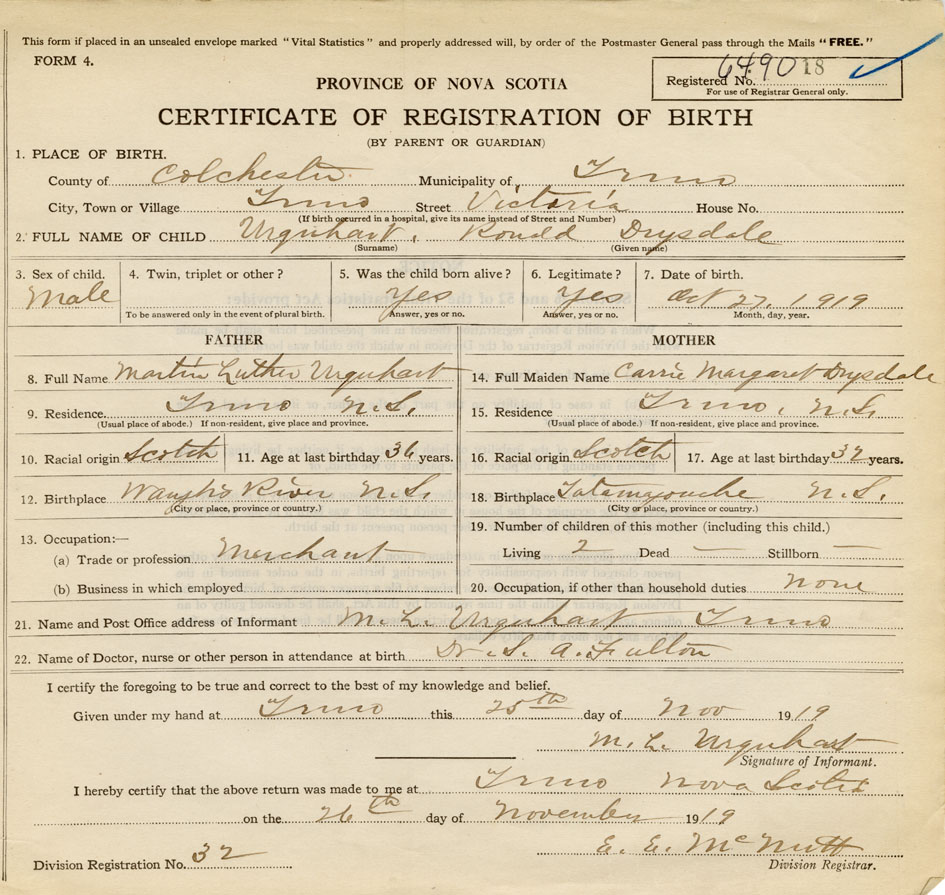 This form if placed in an unsealed envelope marked "Vital Statistics" and properly addressed will, by order of the Postmaster General pass through the Mails "FREE."
FORM 4.
Registered No. 649018
For use of Registrar General only.
PROVINCE OF NOVA SCOTIA
CERTIFICATE OF REGISTRATION OF BIRTH
(BY PARENT OR GUARDIAN)
1. PLACE OF BIRTH.
County of Colchester Municipality of Truro
City, Town or Village Truro Street Victoria House No.
(If birth occurred in a hospital, give its name instead of Street and Number)
2. FULL NAME OF CHILD Urquhart, Ronald Drysdale
(Surname) (Given name)
3. Sex of child. 4. Twin, triplet or other? 5. Was the child born alive? 6. Legitimate? 7. Date of birth.
Male Yes Yes Oct 27, 1919
To be answered only in the event of plural birth. Answer, yes or no. Answer, yes or no. Month, day, year.
FATHER MOTHER
8. Full Name Martin Luther Urquhart 14. Full Maiden Name Carrie Margaret Drysdale
9. Residence Truro N.S. 15. Residence Truro, N.S.
(Usual place of abode.) If non-resident, give place and province. (Usual place of abode.) If non-resident, give place and province.
10. Racial origin Scotch 11. Age at last birthday 36 years. 16. Racial origin Scotch 17. Age at last birthday 32 years.
12. Birthplace Waugh's River N.S. 18. Birthplace Tatamagouche N.S.
(City or place, province or country.) (City or place, province or country.)
13. Occupation:— 19. Number of children of this mother (including this child.)
(a) Trade or profession Merchant Living 2 Dead — Stillborn —
(b) Business in which employed 20. Occupation, if other than household duties None
21. Name and Post Office address of Informant M. L. Urquhart Truro
22. Name of Doctor, nurse or other person in attendance at birth Dr. S. A. Fulton
I certify the foregoing to be true and correct to the best of my knowledge and belief.
Given under my hand at Truro this 25th day of Nov 1919
M. L. Urquhart
Signature of Informant.
I hereby certify that the above return was made to me at Truro Nova Scotia
on the 26th day of November 1919
E. E. McNutt
Division Registration No. 32 Division Registrar.